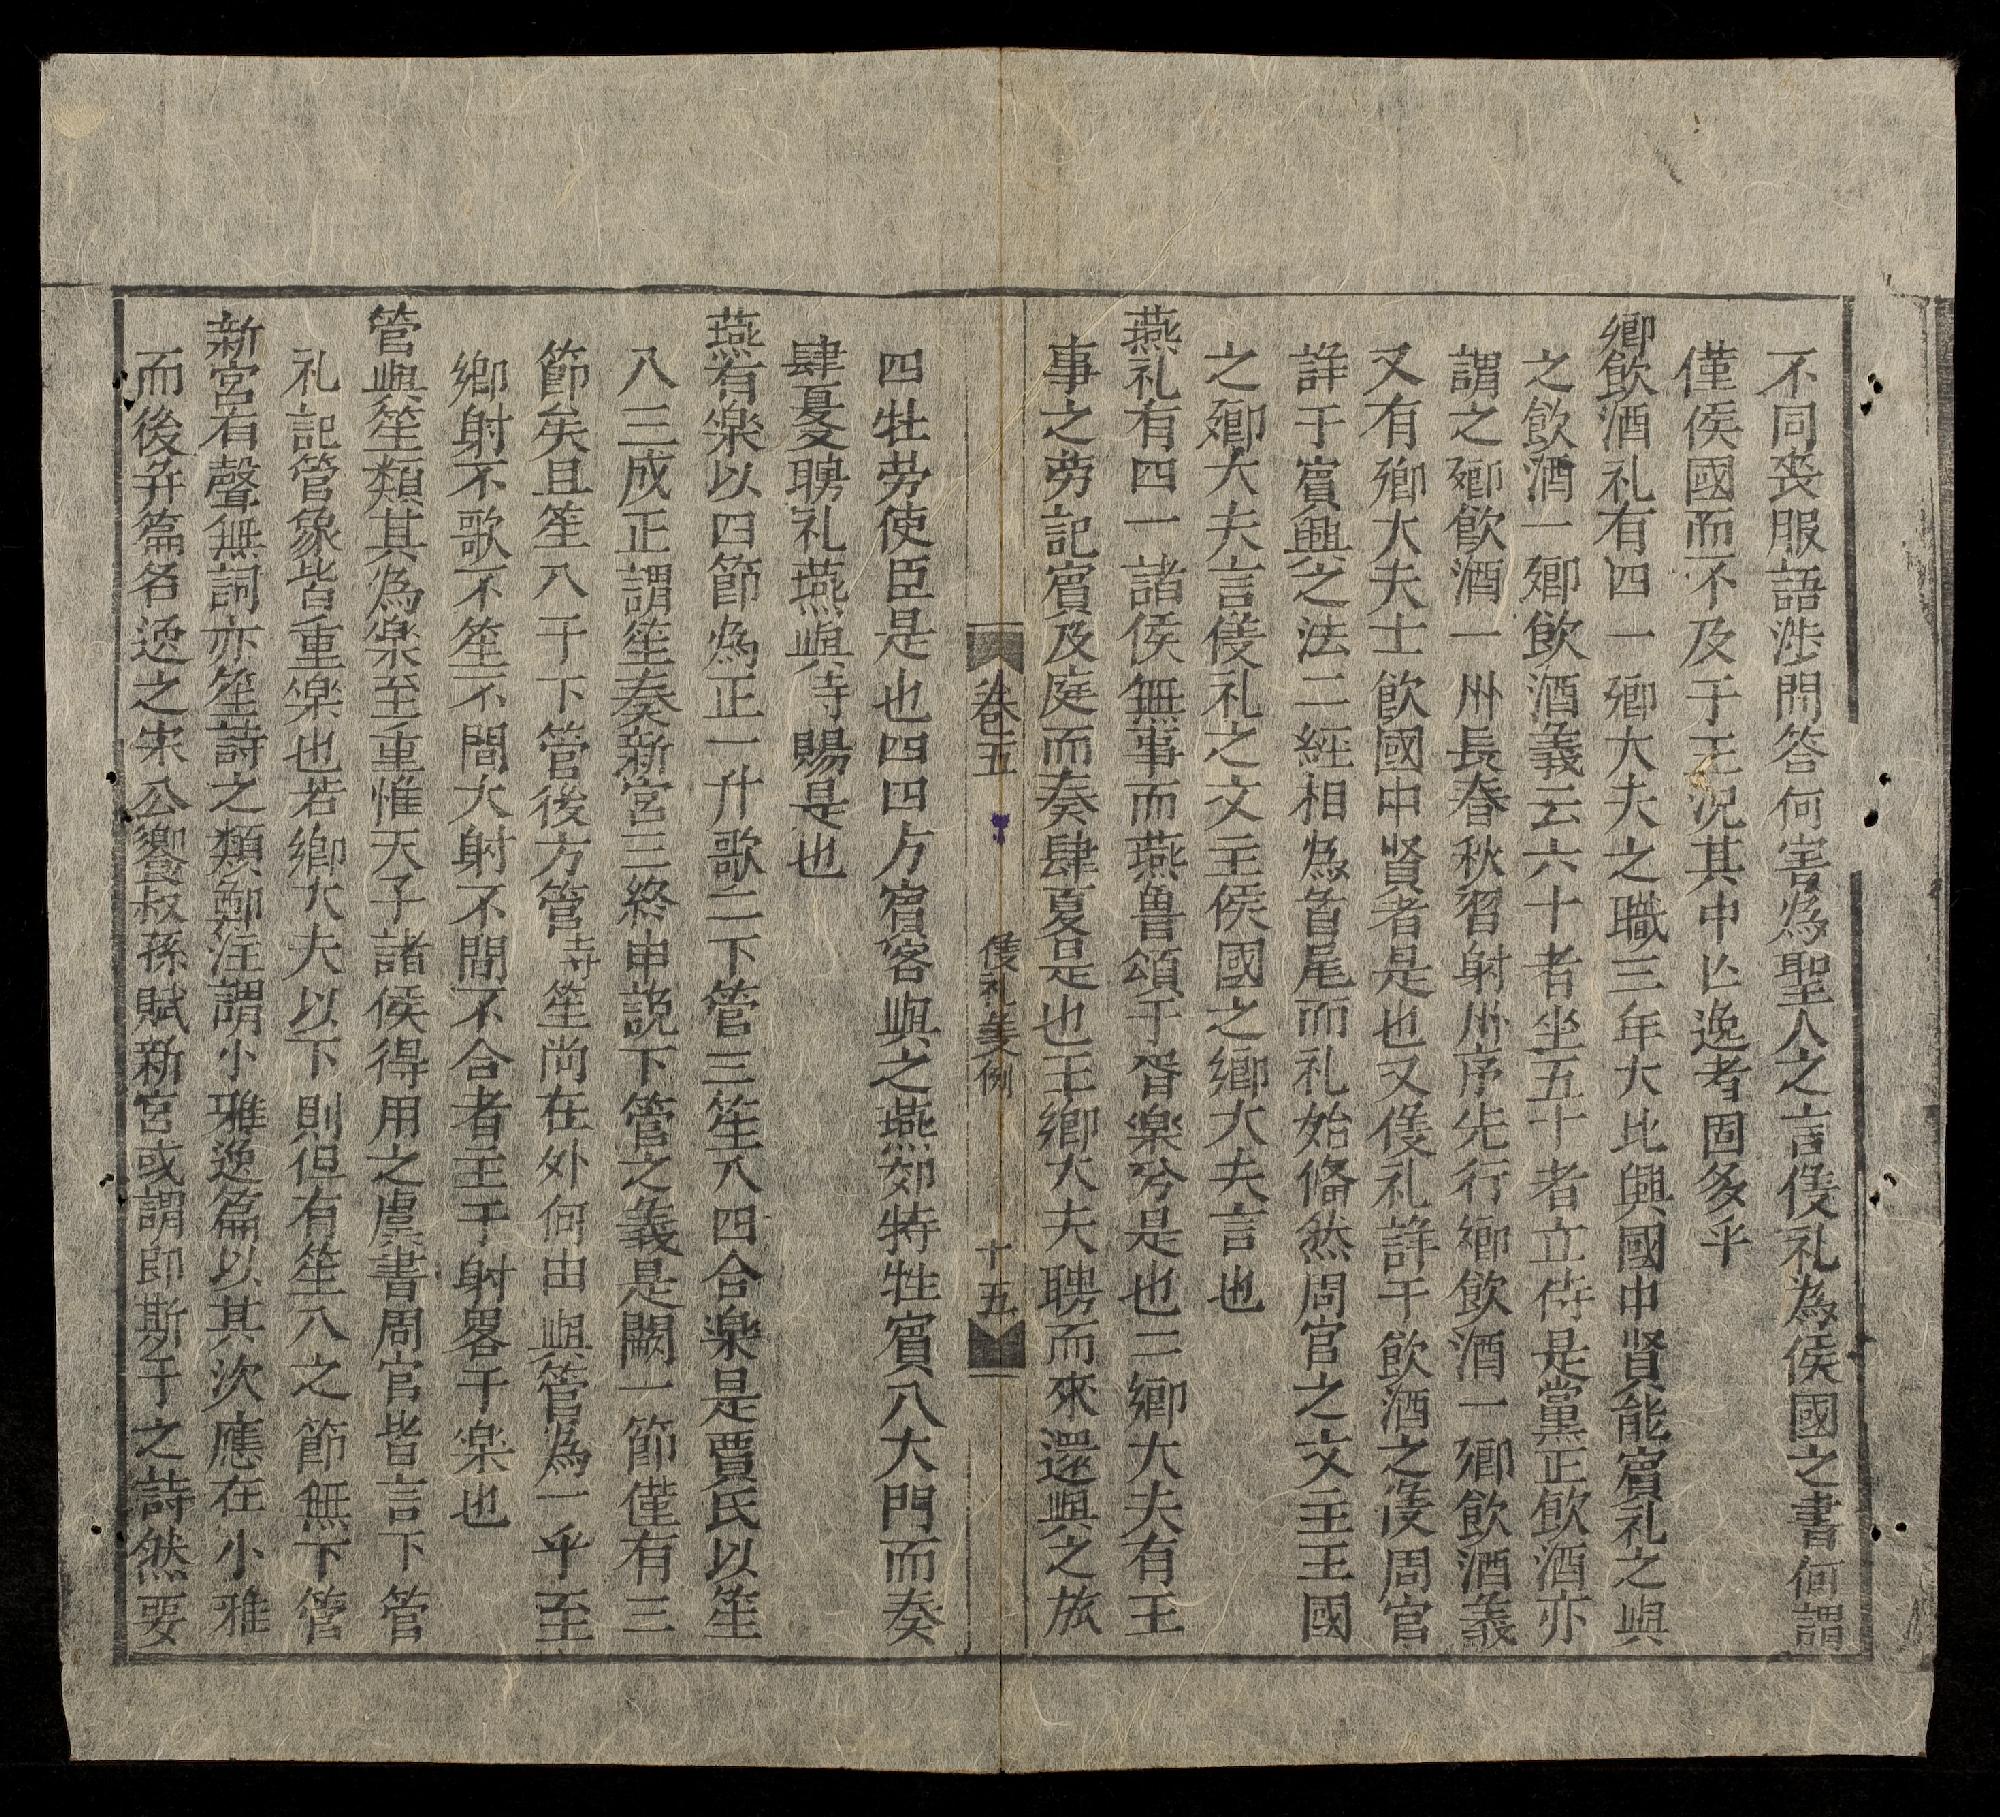 不同喪服語渉問答何害為聖人之言儀礼為侯國之書何謂
僅侯國而不及于王况其中亡逸者固多乎
鄉飲酒礼有四一鄉大夫之職三年大比興國中賢能賓礼之與
之飲酒一鄉飲酒義云六十者坐五十者立侍是黨正飲酒亦
謂之鄉飲酒一州長春秋習射州序先行鄉飲酒一鄉飲酒義
又有鄉大夫士飲國中賢者是也又儀礼詳于飲酒之後周官
詳于賓興之法二經相為首尾而礼始俻然周官之文主王國
之鄉大夫言儀礼之文主侯國之鄉大夫言也
燕礼有四一諸侯無事而燕魯頌于胥楽兮是也二卿大夫有王
事之劳記賓及庭而奏肆夏是也王卿大夫聘而來還與之旅
卷五 儀礼集例 十五
四牡劳使臣是也四四方賓客與之燕郊特牲賓入大門而奏
肆夏聘礼燕與時賜是也
燕有楽以四節為正一升歌二下管三笙入四合楽是賈氏以笙
入三成正謂笙奏新宮三終申説下管之義是闕一節僅有三
節矣且笙入于下管後方管時笙尚在外何由與管為一乎至
鄉射不歌不笙不間大射不間不合者主于射畧于楽也
管與笙類其為楽至重惟天子諸侯得用之虞書周官皆言下管
礼記管象皆重楽也若鄉大夫以下則但有笙入之節無下管
新宮有聲無詞亦笙詩之類鄭注謂小雅逸篇以其次應在小雅
而後弁篇名逸之宋公饗叔孫賦新宮或謂即斯于之詩然要